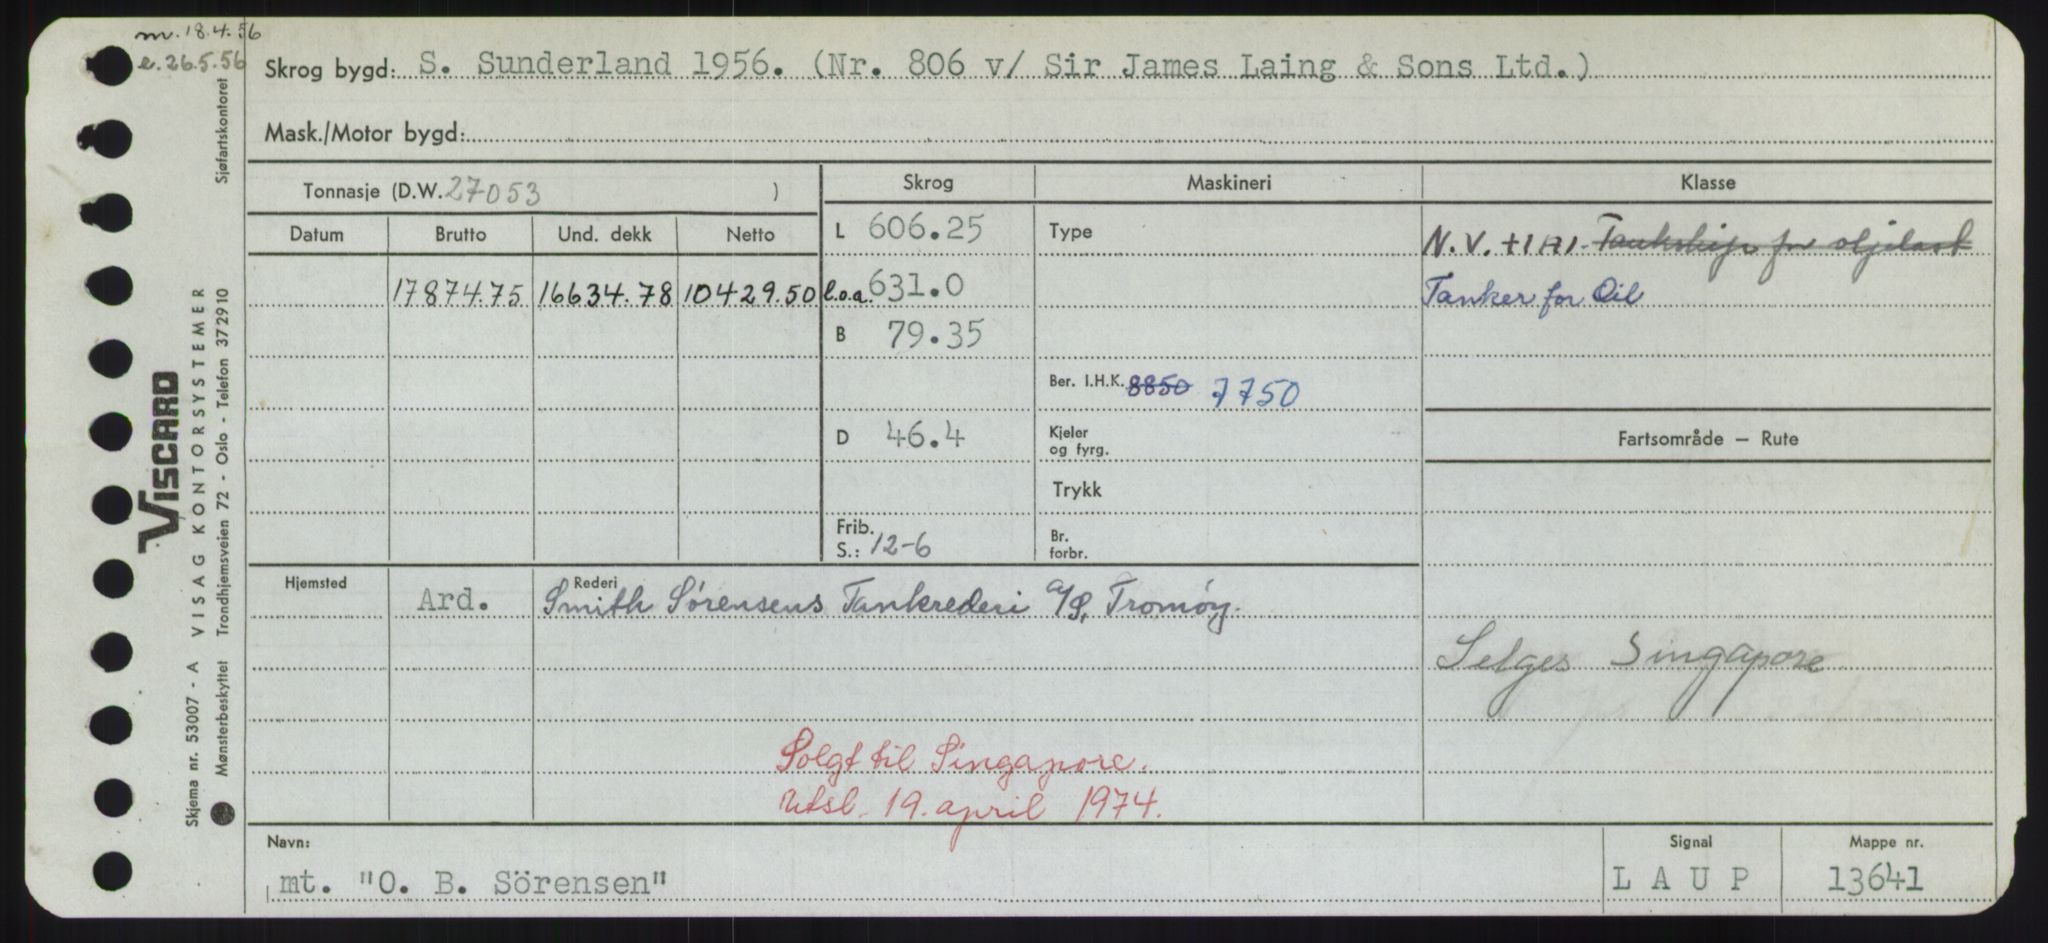 m. 18.4.56
e. 26.5.56
Skrog bygd: S. Sunderland 1956. (Nr. 806 v/ Sir James Laing & Sons Ltd.)
Mask./Motor bygd:
Tonnasje (D.W. 27053 )
Skrog Maskineri Klasse
Datum Brutto Und. dekk Netto
L 606.25 Type N.V. +1A1. Tankskip for oljelast
17874.75 16634.78 10429.50 l.o.a. 631.0 Tanker for Oil
B 79.35
Ber. I.H.K. 8850 7750
D 46.4 Kjeler og fyrg. Fartsområde — Rute
Trykk
Frib. S.: 12-6 Br. forbr.
Hjemsted Ard. Rederi Smith Sørensens Tankrederi A/S, Tromøy.
Selges Singapore
Solgt til Singapore.
Utsl. 19. april 1974.
Navn: Signal Mappe nr.
mt. "O. B. Sörensen" LAUP 13641
Skjema nr. 53007 - A VISAG KONTORSYSTEMER
VISCARD
Mønsterbeskyttet Trondhjemsveien 72 - Oslo - Telefon 37 29 10 Sjøfartskontoret